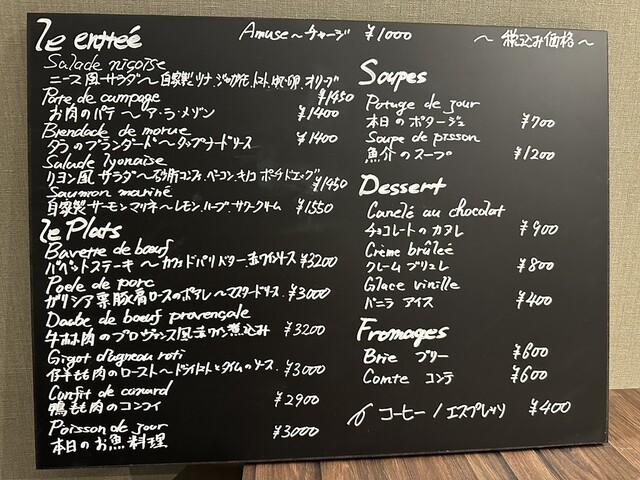 le entreé
Amuse～チャージ ¥1000
～税込み価格～
Salade niçoise
ニース風サラダ～自家製ツナ、ジャガイモ、トマト、ゆで卵、オリーブ
¥1450
Pate de campage
お肉のパテ～ア・ラ・メゾン ¥1400
Brendade de morue
タラのブランダード～タップナードソース ¥1400
Salade lyonaise
リヨン風サラダ～砂肝コンフィ、ベーコン、キノコ ポーチドエッグ
¥1450
Saumon mariné
自家製サーモンマリネ～レモン、ハーブ、サワークリーム ¥1550
le Plats
Bavette de bœuf
バベットステーキ～カフェドパリバター、赤ワインソース ¥3200
Poele de porc
ガリシア栗豚肩ロースのポアレ～マスタードソース ¥3000
Daube de bœuf provençale
牛ホホ肉のプロヴァンス風赤ワイン煮込み ¥3200
Gigot d'agneau roti
仔羊もも肉のロースト～ドライトマトとタイムのソース ¥3000
Confit de canard
鴨もも肉のコンフィ ¥2900
Poisson de jour
本日のお魚料理 ¥3000
Soupes
Potage de jour
本日のポタージュ ¥700
Soupe de pisson
魚介のスープ ¥1200
Dessert
Canelé au chocolat
チョコレートのカヌレ ¥900
Crème brûleé
クレームブリュレ ¥800
Glace vinille
バニラアイス ¥400
Fromages
Brie ブリー ¥600
Comte コンテ ¥600
コーヒー / エスプレッソ ¥400